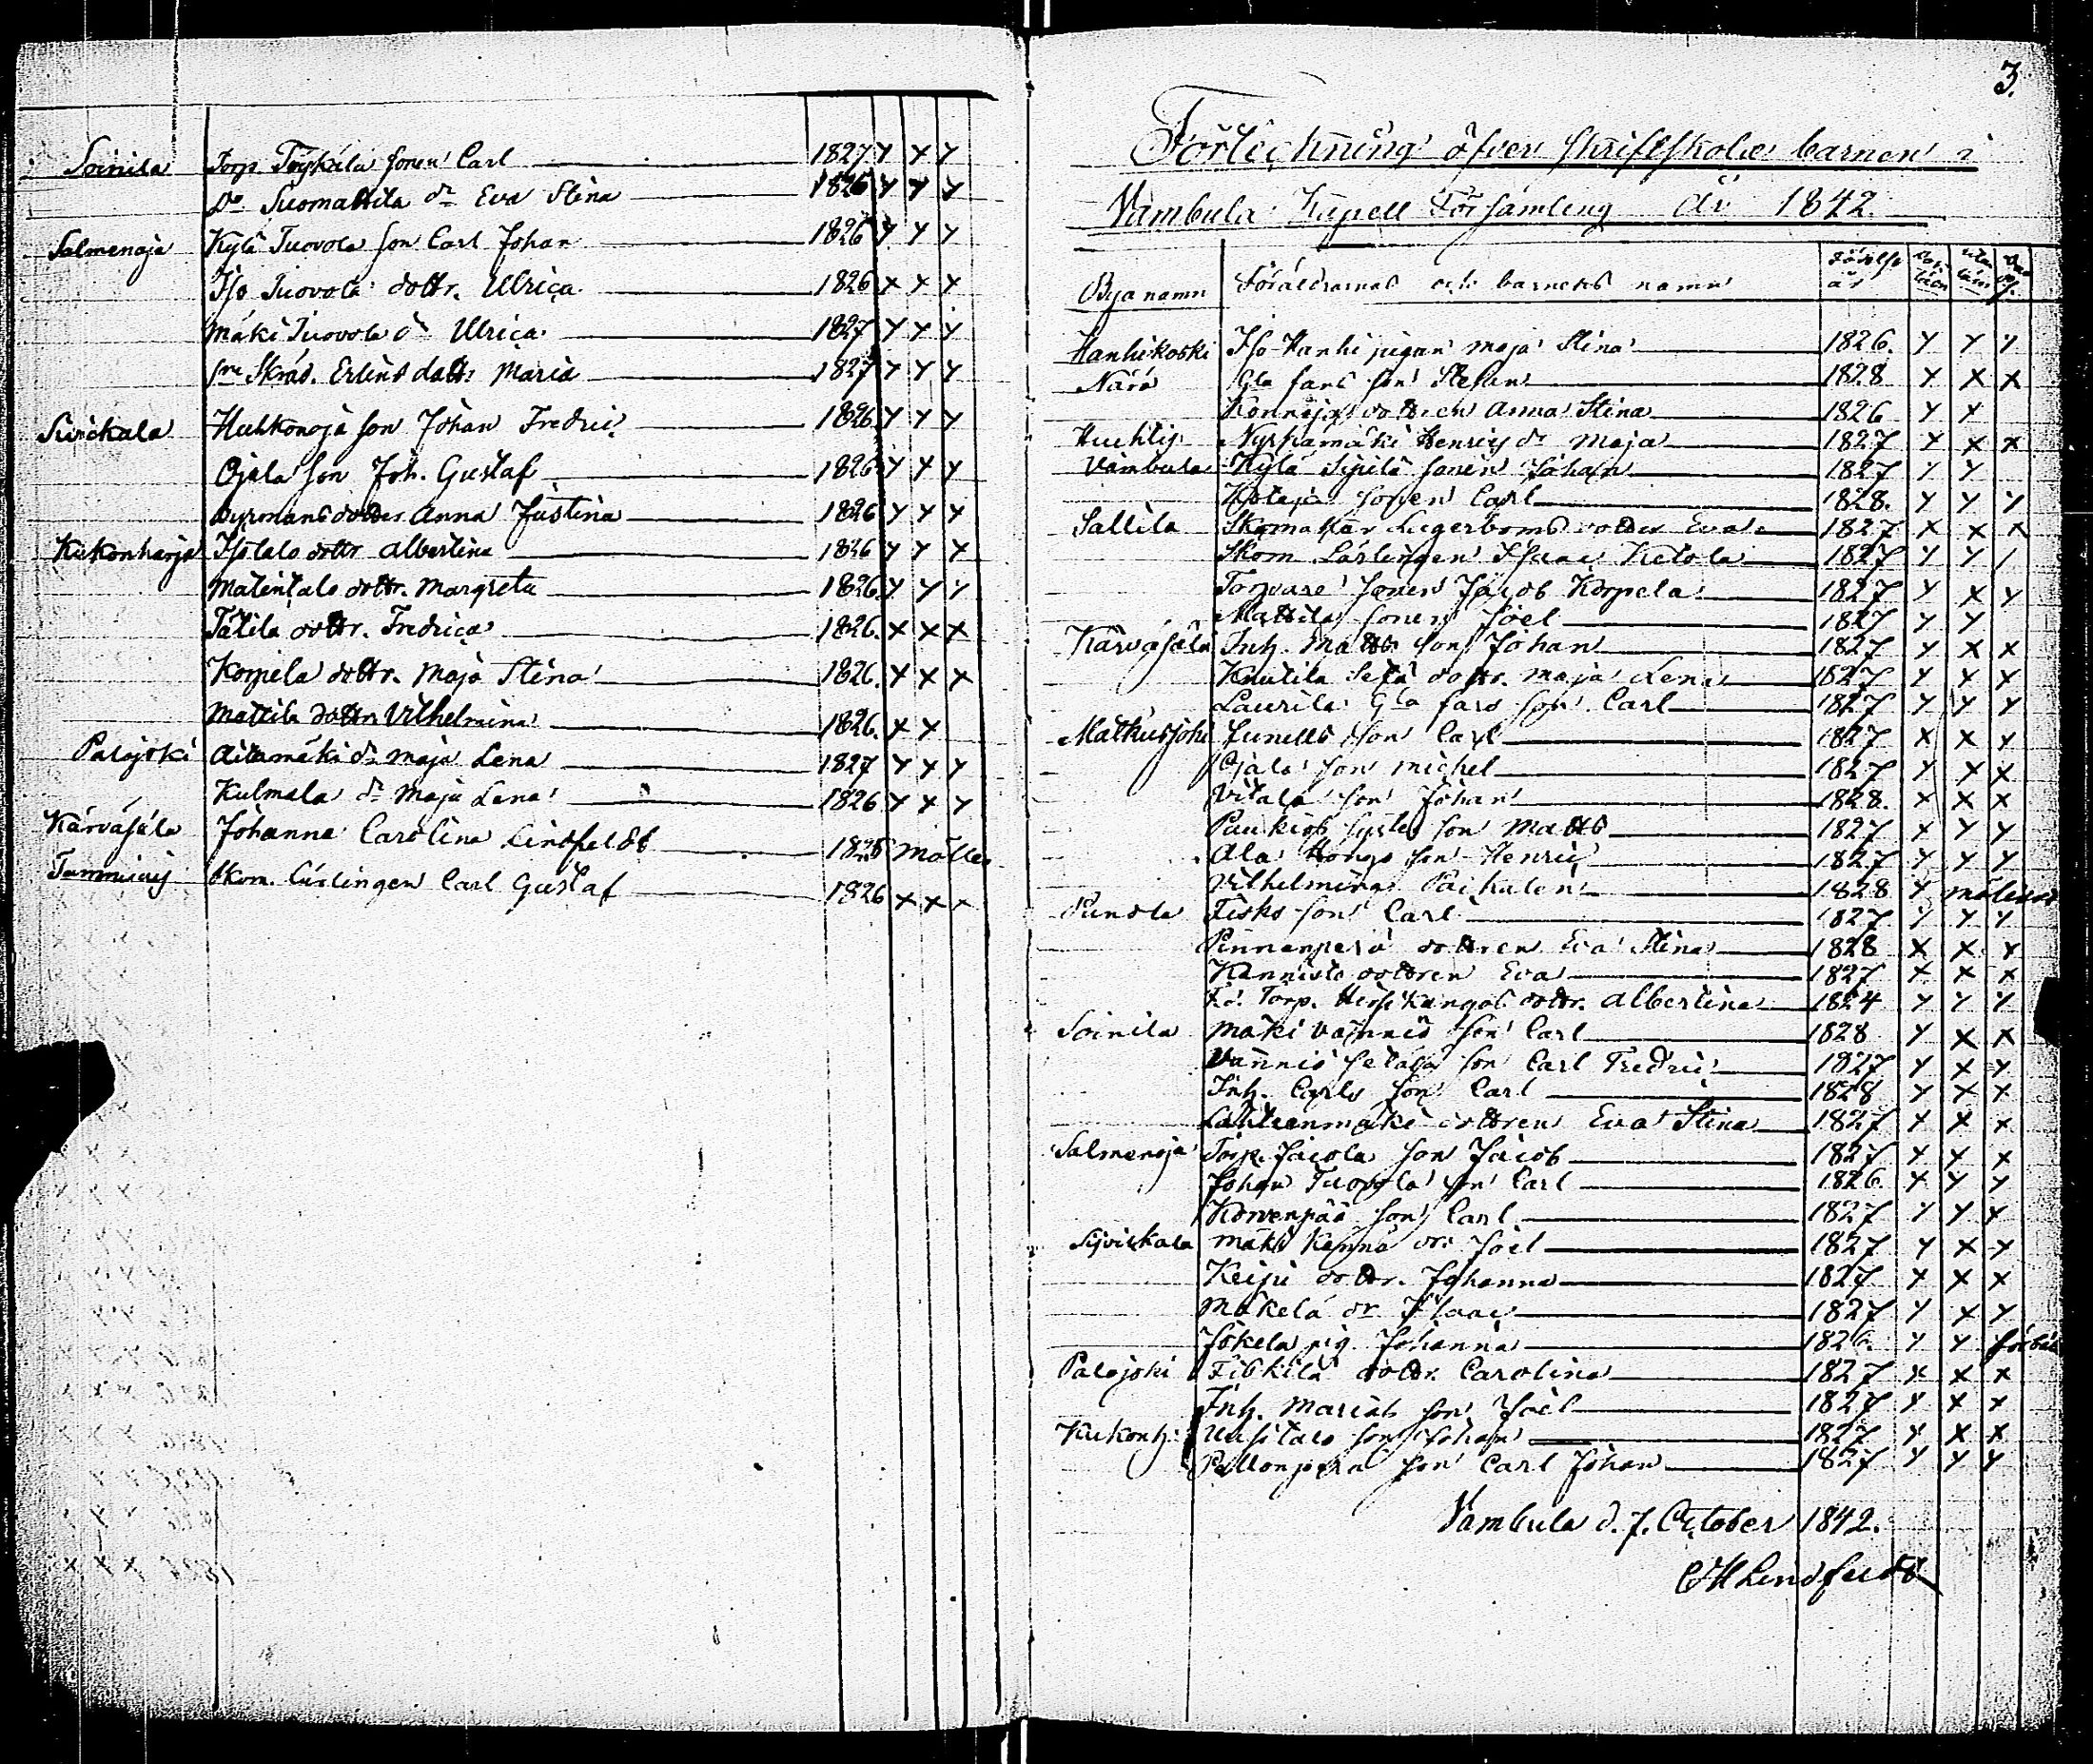 Soinila Torp. Töyskälä sonen Carl 1827 x x x
Do Suomattila dr Eva Stina 1826 x x x
Salmenoja Kylä Tuovola son Carl Johan 1826 x x x
Iso Tuovola dottr. Ulrica 1826 x x x
Mäki Tuovola dr Ulrica 1827 x x x
Skräd. Erlins dottr Maria 1827 x x x
Suickala Huhkonoja son Johan Fredric 1826 x x x
Ojala son Joh. Gustaf 1826 x x x
dotter Anna Justina 1826 x x x
Kukonharja Isotalo dottr Albertina 1826 x x x
Matintalo dottr. Margreta 1826. x x x
Tätilä dottr. Fredrica 1826. x x x
Korpela dottr. Maja Stina 1826. x x x
Mattila dottr Vilhelmina 1826. x x
Palojoki Aitamäki dr Maja Lena 1827 x x x
Kulmala dr Maja Lena 1826 x x x
Kärväsälä Johanna Carolina Lindfeldt
Skom. Lärlingen Carl Gustaf 1826 x x x
3.
Förteckning öfver skriftskole barnen i
Vambula Kapell Församling år 1842.
Byanamn Föräldrarnas och barnets namn Födelse år
Hanhikoski Iso-Hanhi pigan Maja Stina 1826. x x x
Närä Gla fars son Stefan 1828 x x x
dottren Anna Stina 1826 x x
Huhtig. Nyrhämäki Henrics dr Maja 1827 x x x
Vambula Kylä Sipilä sonen Johan 1827 x x
sonen Carl 1828. x x x
Sallila Skomakar Lagerboms dotter Eva 1827 x x x
Skom. Lärlingen Isaac Ketola 1827 x x /
Torpare sonen Jacob Korpela 1827 x x x
Mattila sonen Joel 1827 x x
Kärväsälä Inh. Matts son Johan 1827 x x x
Knutila Sefä dottr. Maja Lena 1827 x x x
Laurila Gla fars son Carl 1827 x x x
Matkusjoki Junells son Carl 1827 x x x
Ojala son Michel 1827 x x x
Vitala son Johan 1828. x x x
son Matts 1827 x x x
Ala Hongo son Henric 1827 x x x
Vilhelmina 1828 x
Punola Fisks son Carl 1827 x x x
Pinnanperä dottren Eva Stina 1828 x x x
Kännistö dottren Eva 1827 x x x
Torp. dottr. Albertina 1824 x x x
Soinila Mäki Vännis son Carl 1828 x x x
Vännis son Carl Fredric 1827 x x x
Inh. Carls son Carl 1828 x x x
Lähteenmäki dottren Eva Stina 1827 x x x
Salmenoja Torp. Jacola son Jacob 1827 x x x
Johan Tuovola son Carl 1826. x x x
Korvenpää son Carl 1827 x x x
Mäki Kännö Joel 1827 x x x
Keipi dottr. Johanna 1827 x x x
Mäkelä Isaac 1827 x x x
Jokela pig. Johanna 1826. x x
Palojoki dottr. Carolina 1827 x x x
Inh. Marias son Joel 1827 x x x
Kukonh: Uusitalo son Johan 1827 x x x
Pellonperä son Carl Johan 1827 x x x
Vambula d. 7. October 1842.